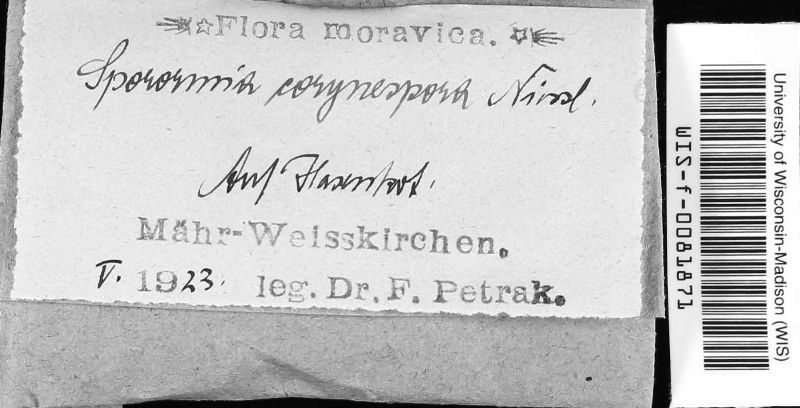 Flora moravica.
Sporormia corynespora Niessl.
Auf Hasenkot.
Mähr-Weisskirchen.
V. 1923. leg. Dr. F. Petrak.
University of Wisconsin-Madison (WIS)
WIS-f-0081871